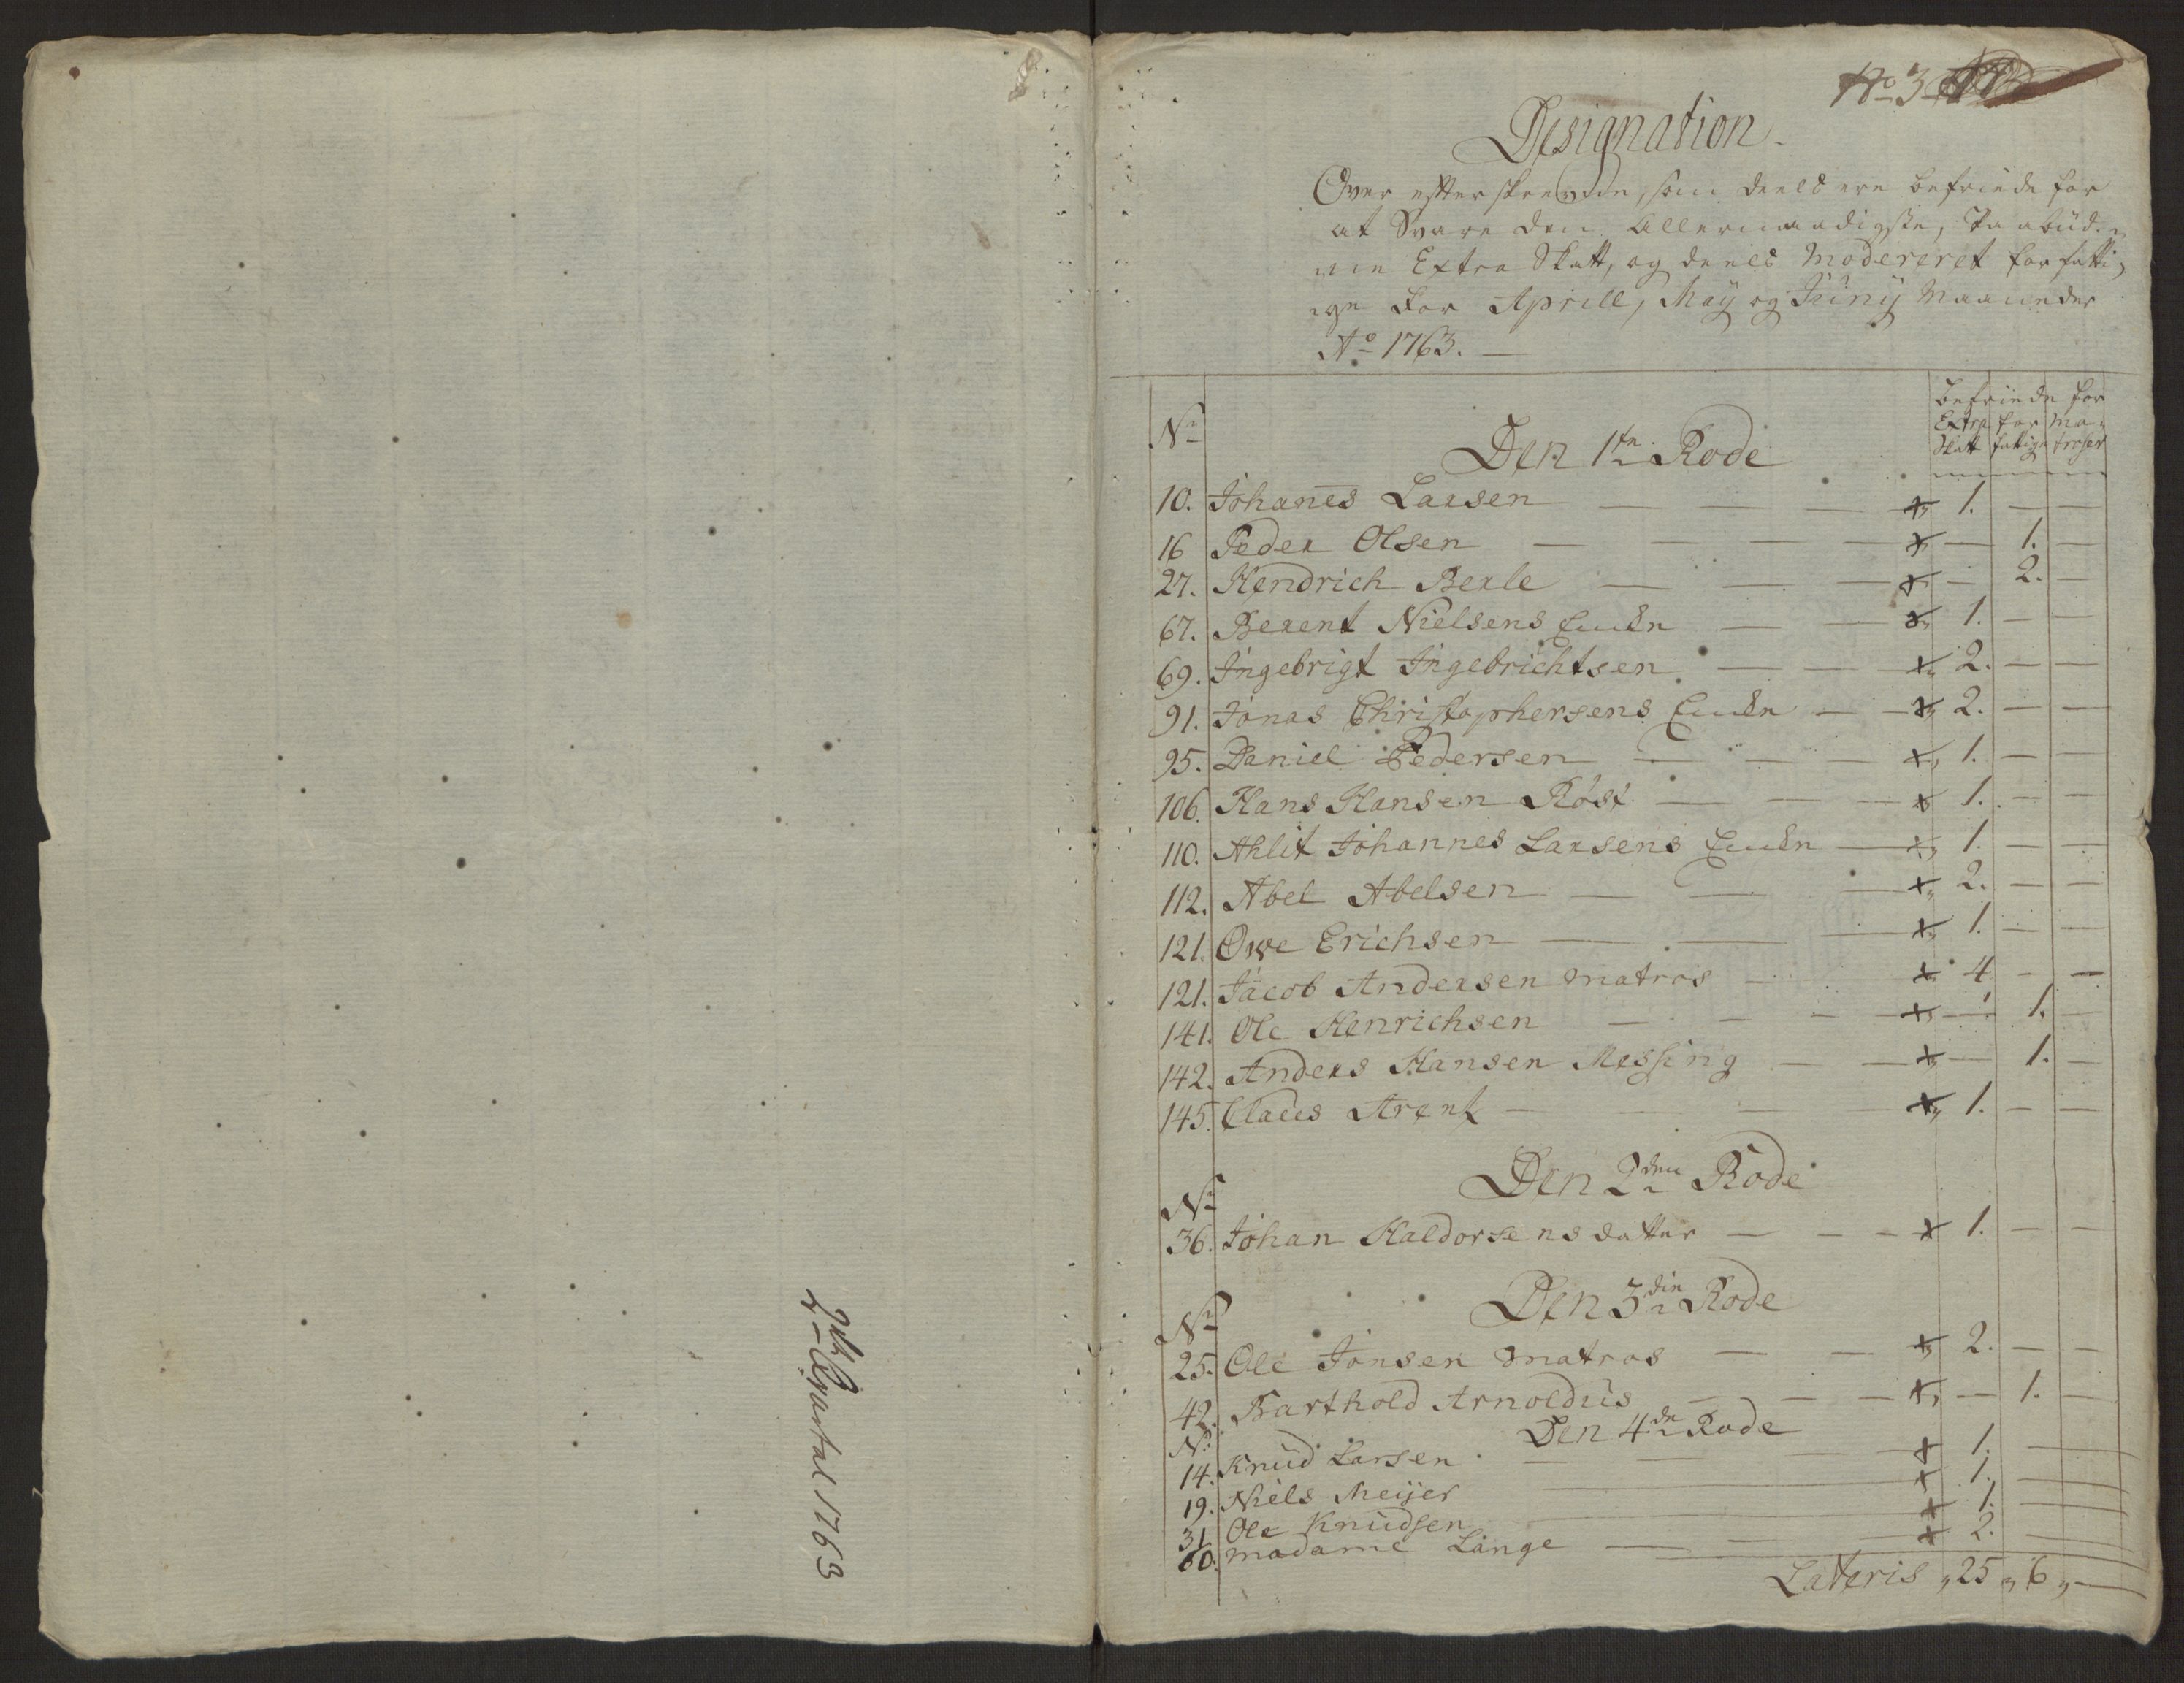 2det Qvartal 1763
No 3
Designation.
Over efterskrevne, som deels ere befriede for
at Svare den Allernaadigste, Paabud-
ne Extra Skatt, og deels Modereret for fatti-
ge for Aprill, May og Juny Maaneder
Ao 1763.
befriede for
Extra for Ma-
Skatt fattige troser
No Den 1te Rode
10. Johanes Larsen — — — 1. — —
16 Peder Olsen — — — — 1. —
27. Hendrich Berle — — — 2. —
67. Berent Nielsens Encke — — 1. — —
69. Ingebrigt Ingebrichtsen — — 2. — —
91. Jonas Christophersens Encke — — 2. — —
95. Daniel Pedersen — — — 1. — —
106. Hans Hansen Röst — — — 1. — —
110. Ahlit Johannes Larsens Encke — 1. — —
112. Abel Abelsen — — — 2. — —
121. Owe Erichsen — — — 1. — —
121. Jacob Andersen Matros — 4. — —
141. Ole Henrichsen — — — — 1. —
142. Anders Hansen Messing — — — 1. —
145. Claus Arent — — — 1. — —
Den 2den Rode
No
36. Johan Haldorsens datter — — — 1. — —
Den 3die Rode
No
25. Ole Jonsen Matros — — 2. — —
42. Barthold Arnoldus — — — — 1. —
No Den 4de Rode
14. Knud Larsen — — — 1. —
19. Niels Meijer — 1. —
31 Ole Knudsen — 1. —
60. Madame Lange — — 2. —
Lateris „ 25 „ 6 „ —